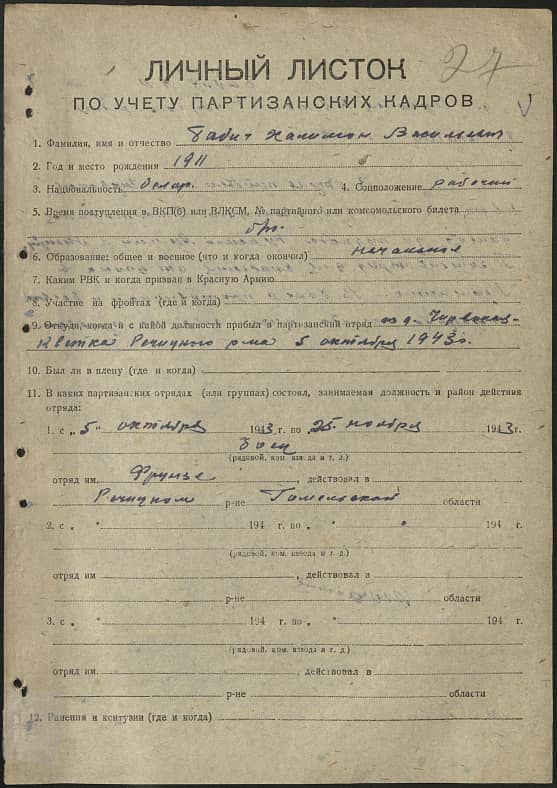 27
ЛИЧНЫЙ ЛИСТОК
ПО УЧЕТУ ПАРТИЗАНСКИХ КАДРОВ
1. Фамилия, имя и отчество Бабич Халимон Васильевич
2. Год и место рождения 1911
3. Национальность белар. 4. Соцположение рабочий
5. Время поступления в ВКП(б) или ВЛКСМ, № партийного или комсомольского билета
6. Образование: общее и военное (что и когда окончил) начальное
7. Каким РВК и когда призван в Красную Армию
8. Участие на фронтах (где и когда)
9. Откуда, когда и с какой должность прибыл в партизанский отряд из д.
Речицкого р-на 5 октября 1943 г.
10. Был ли в плену (где и когда)
11. В каких партизанских отрядах (или группах) состоял, занимаемая должность и район действия
отряда:
1. с „ 5 " октября 1943 г. по „ 25 " ноября 1943 г.
боец
(рядовой, ком. взвода и т. д.)
отряд им. Фрунзе , действовал в
Речицком р-не Гомельской области
2. с „ " 194 г. по „ " 194 г.
(рядовой, ком. взвода и т. д.)
отряд им , действовал в
р-не области
3. с „ " 194 г. по „ " 194 г.
(рядовой, ком. взвода и т. д.)
отряд им. , действовал в
р-не области
12. Ранения и контузии (где и когда)